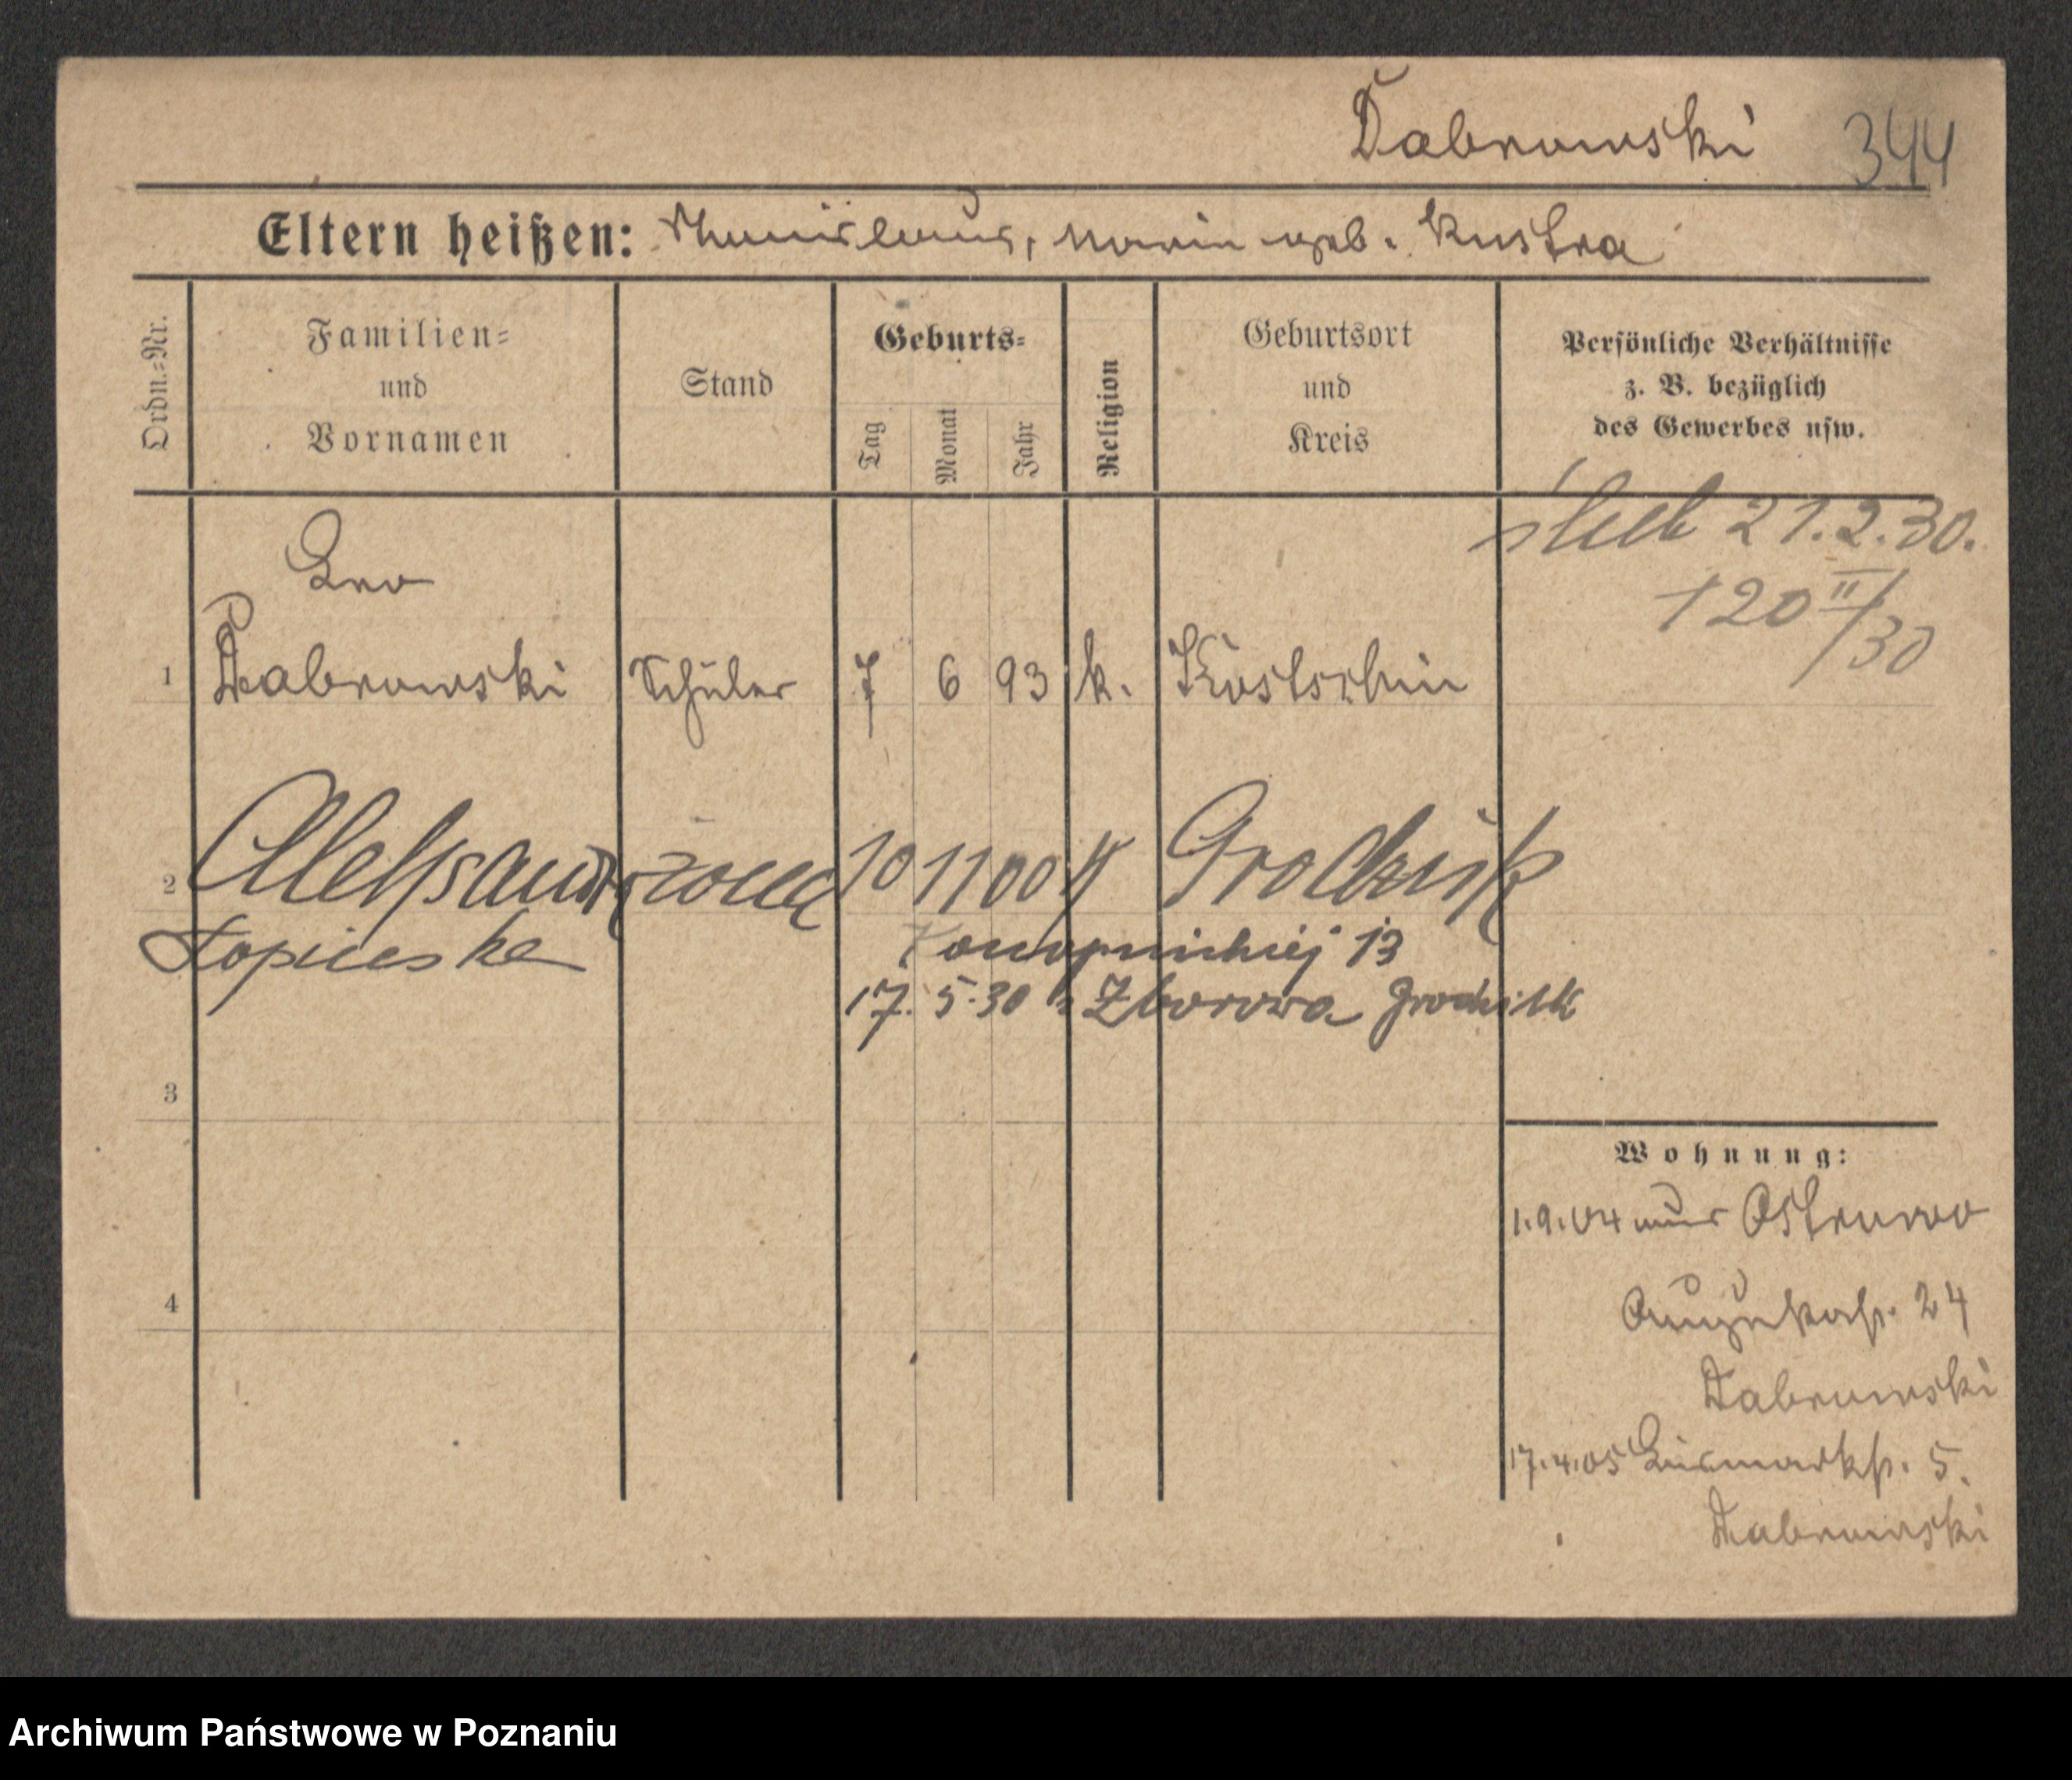 Dabrowski 344
Eltern heißen: Stanislaus, Maria geb. Kustra
Ordn.-Nr.
Familien-
und
Vornamen
Stand
Geburts-
Tag
Monat
Jahr
Religion
Geburtsort
und
Kreis
Persönliche Verhältnisse
z. B. bezüglich
des Gewerbes usw.
ślub 21.2.30.
+ 20 II/30
Leo
1 Dabrowski Schüler 7 6 93 k. Kostschin
2 Aleksandra żona 10 11 00 K Grodzisk
Łopińska
Konopnickiej 13
17. 5. 30 z Zborowa Grodzisk
3
4
Wohnung:
1.9.04 aus Ostrowo
24
Dabrowski
17.4.05 Bismarkstr. 5.
Dabrowski
Archiwum Państwowe w Poznaniu